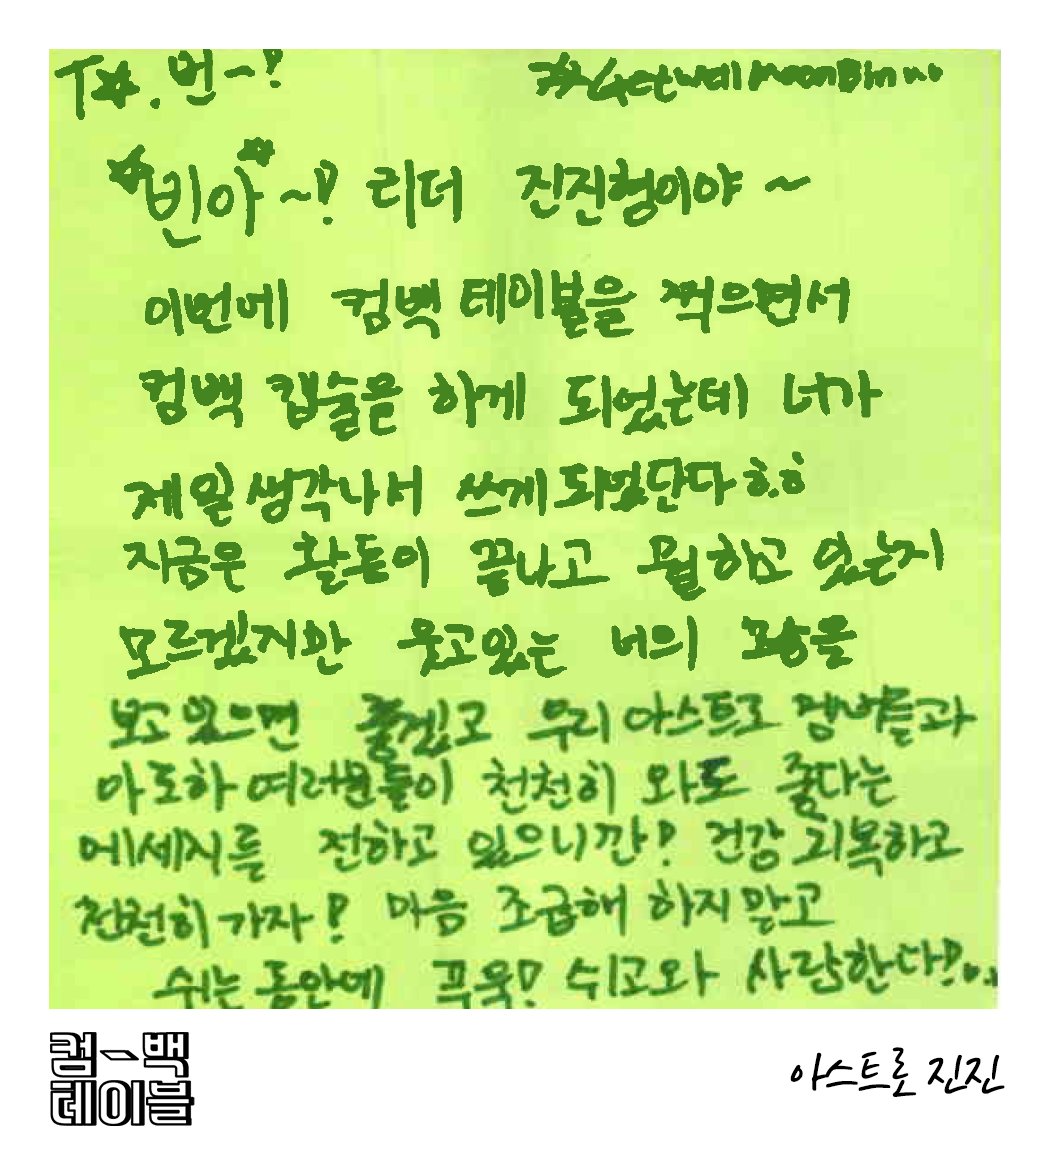 T☆.번~! #Get well MoonBin
☆빈아☆~! 리더 진진형이야~
이번에 컴백 테이블을 찍으면서
컴백 캡슐을 하게 되었는데 너가
제일 생각나서 쓰게되었단다ㅎ.ㅎ
지금은 활동이 끝나고 뭘하고 있는지
모르겠지만 웃고있는 너의 모습을
보고있으면 좋겠고 우리 아스트로 멤버들과
아로하 여러분들이 천천히 와도 좋다는
메세지를 전하고 있으니깐! 건강 회복하고
천천히 가자! 마음 조급해 하지말고
쉬는 동안에 푸욱! 쉬고와 사랑한다!
컴~백
테이블
아스트로 진진